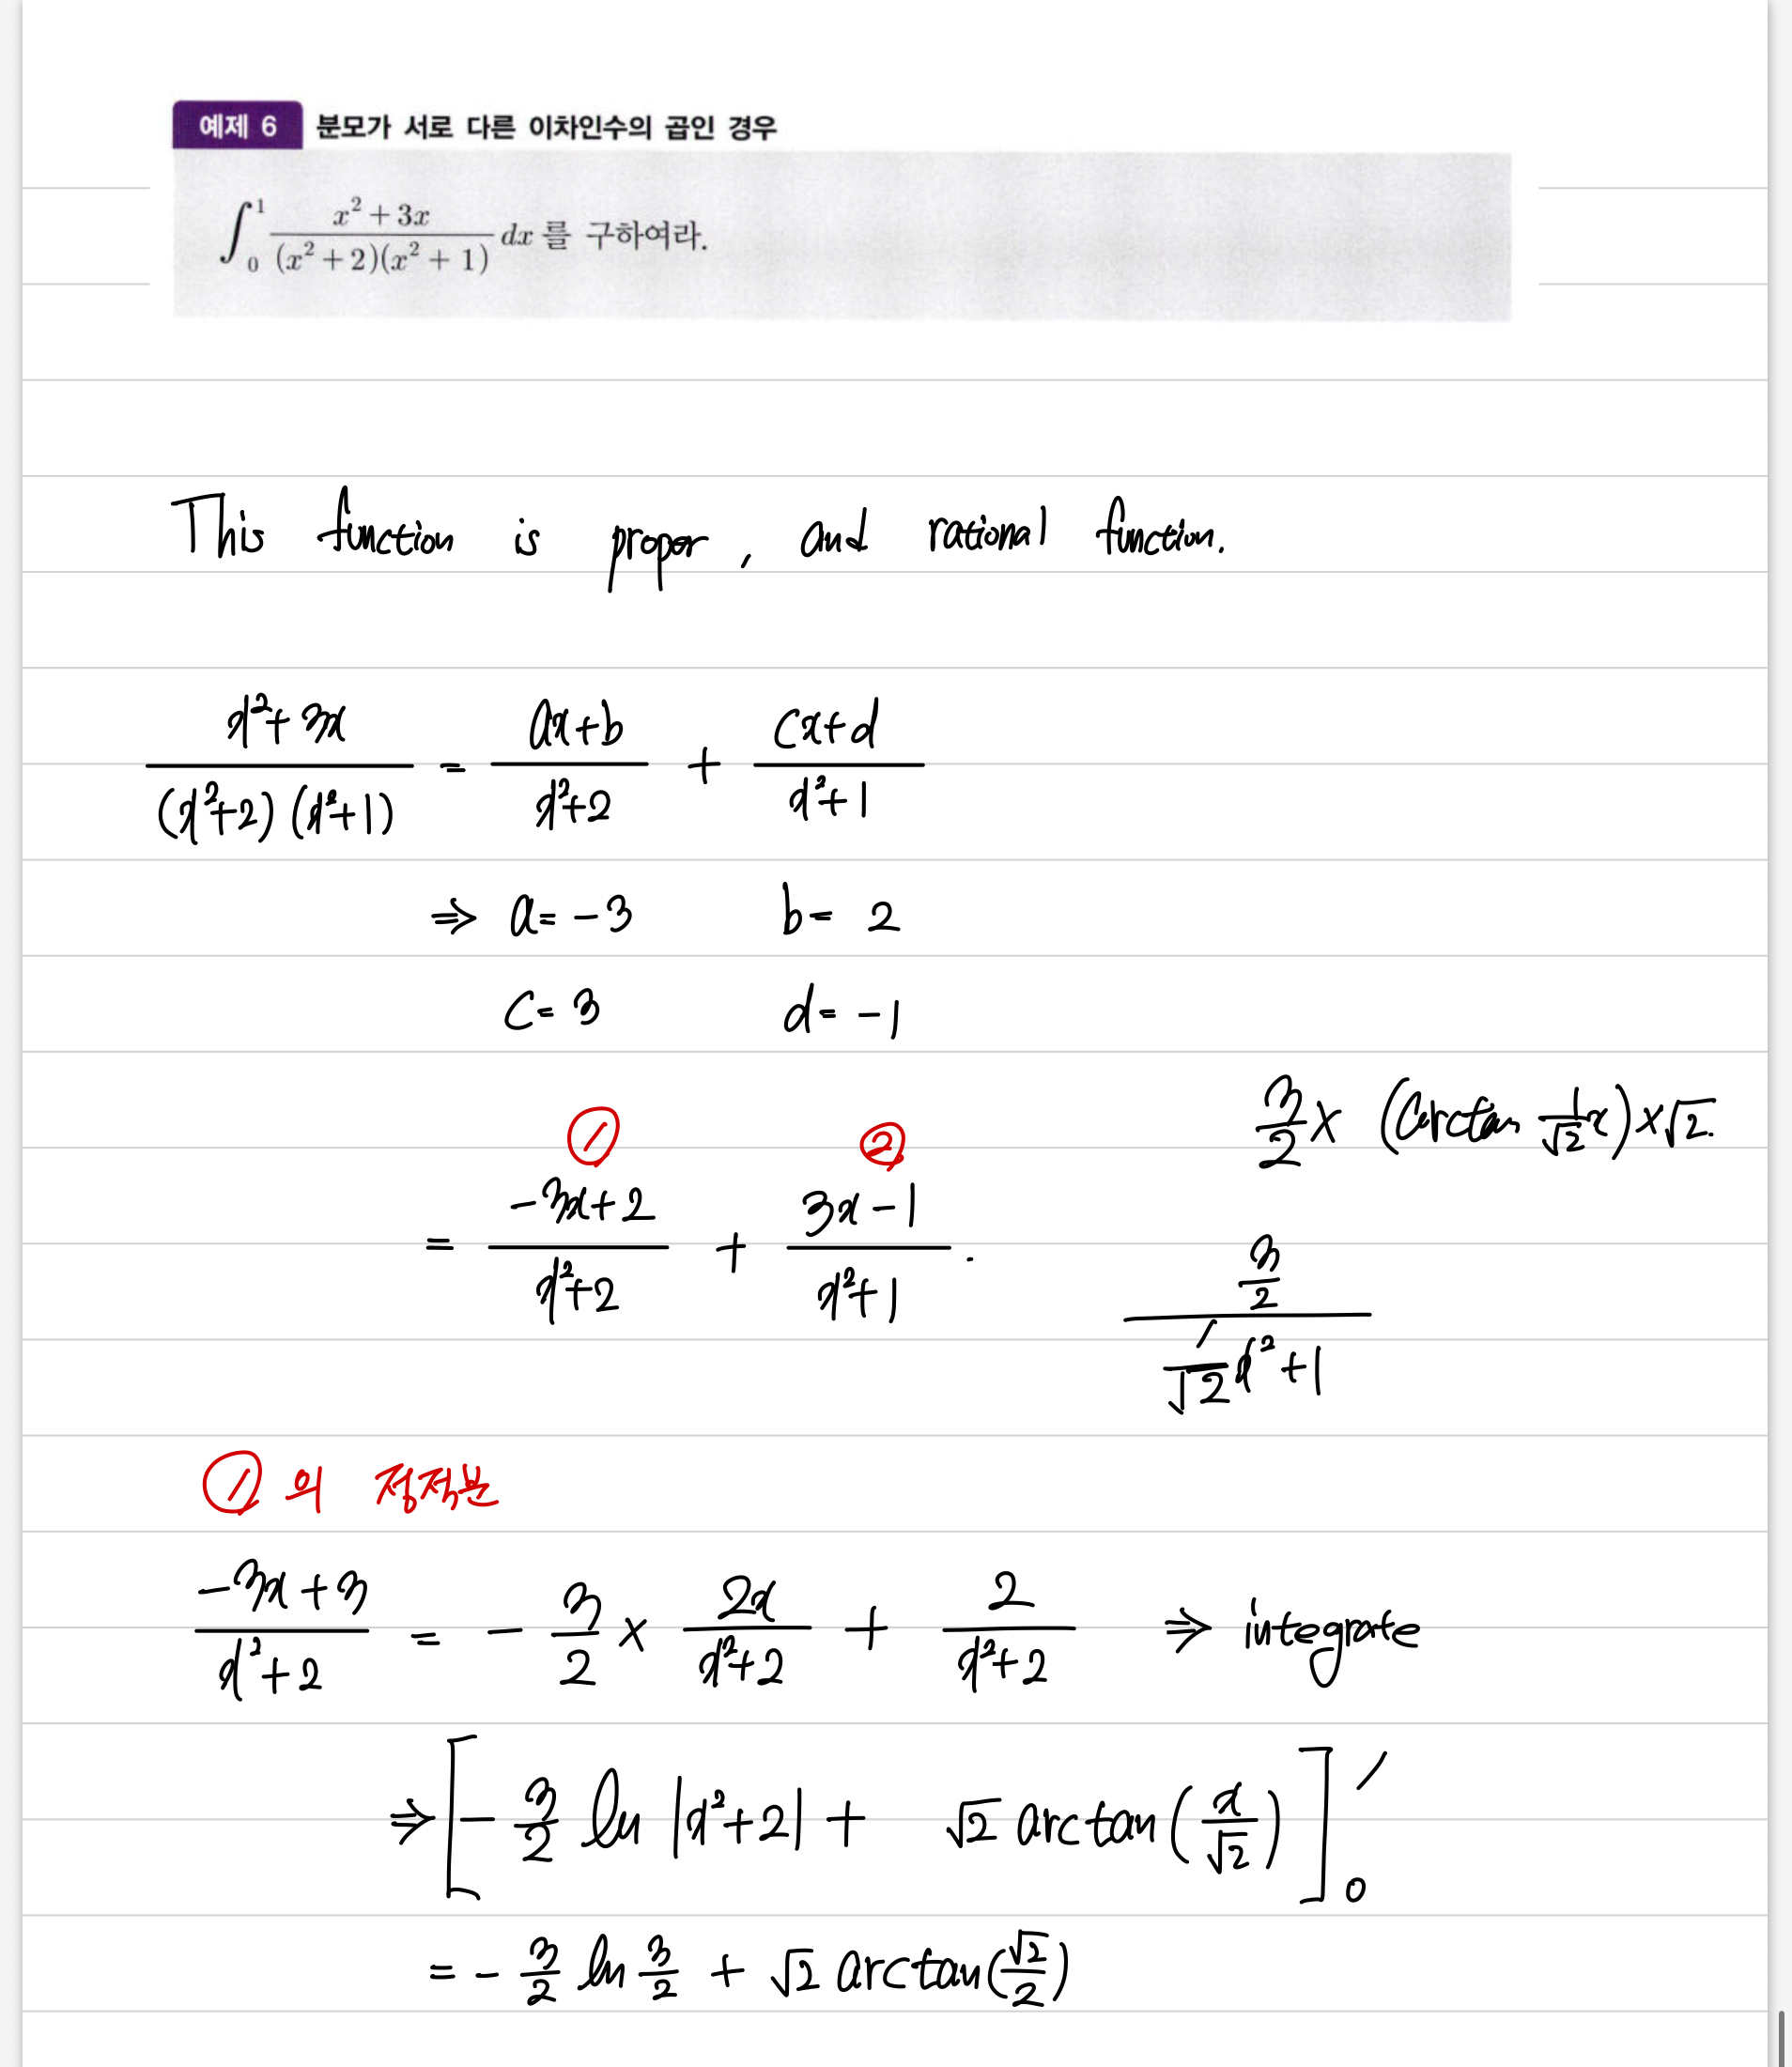 예제 6 분모가 서로 다른 이차인수의 곱인 경우
∫₀¹ (x² + 3x)/((x² + 2)(x² + 1)) dx 를 구하여라.
This function is proper, and rational function.
(x²+3x)/((x²+2)(x²+1)) = (ax+b)/(x²+2) + (cx+d)/(x²+1)
⇒ a = -3 b = 2
c = 3 d = -1
① ②
= (-3x+2)/(x²+2) + (3x-1)/(x²+1) .
3/2 × (arctan 1/√2 x) × √2.
(3/2)/(1/√2 x² + 1)
① 의 정적분
(-3x+3)/(x²+2) = - 3/2 × 2x/(x²+2) + 2/(x²+2) ⇒ integrate
⇒ [ - 3/2 ln |x²+2| + √2 arctan(x/√2) ]₀¹
= - 3/2 ln 3/2 + √2 arctan(√2/2)